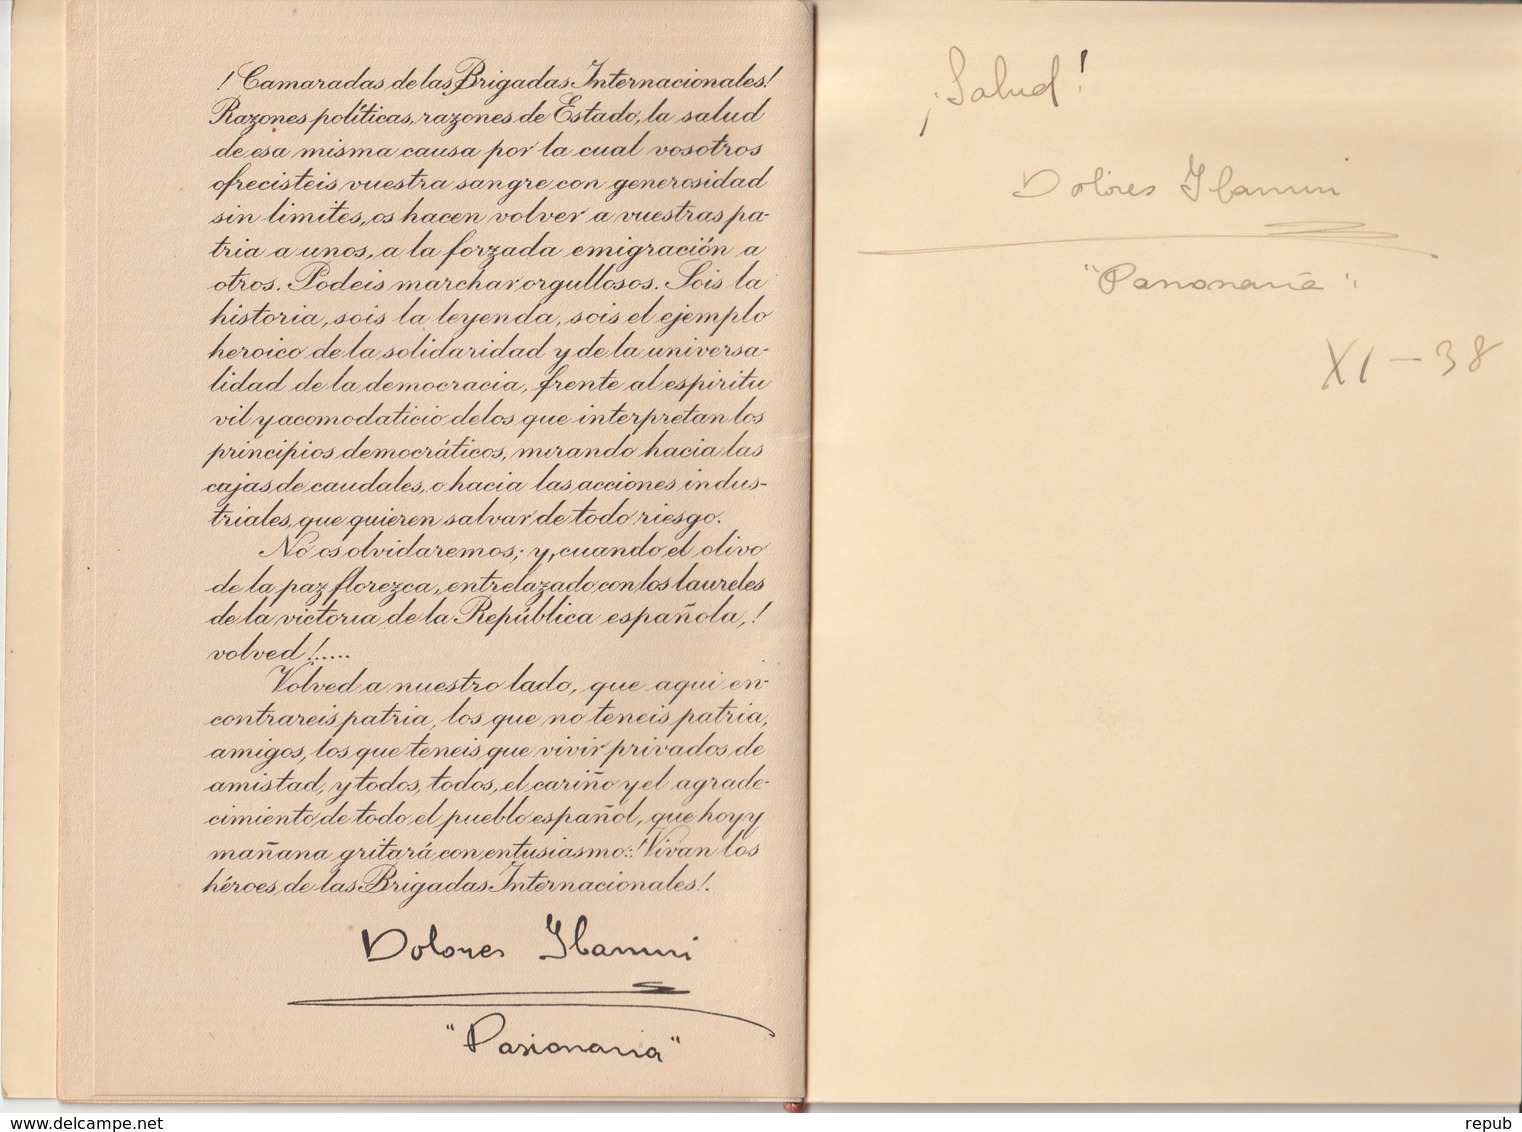 ! Camaradas de las Brigadas Internacionales!
Razones políticas, razones de Estado, la salud
de esa misma causa por la cual vosotros
ofrecisteis vuestra sangre con generosidad
sin limites, os hacen volver a vuestras pa-
tria a unos, a la forzada emigración a
otros. Podeis marchar orgullosos. Sois la
historia, sois la leyenda, sois el ejemplo
heroico de la solidaridad y de la universa-
lidad de la democracia, frente al espiritu
vil y acomodaticio de los que interpretan los
principios democráticos, mirando hacia las
cajas de caudales, o hacia las acciones indus-
triales, que quieren salvar de todo riesgo.
No os olvidaremos; y, cuando el olivo
de la paz florezca, entrelazado con los laureles
de la victoria de la República española, !
volved !.....
Volved a nuestro lado, que aqui en-
contrareis patria, los que no teneis patria,
amigos, los que teneis que vivir privados de
amistad, y todos, todos, el cariño y el agrade-
cimiento de todo el pueblo español, que hoy y
mañana gritará con entusiasmo: ! Vivan los
héroes de las Brigadas Internacionales!.
Dolores Ibarruri
"Pasionaria"
¡Salud!
Dolores Ibarruri
"Pasionaria".
XI - 38
www.delcampe.net
repub